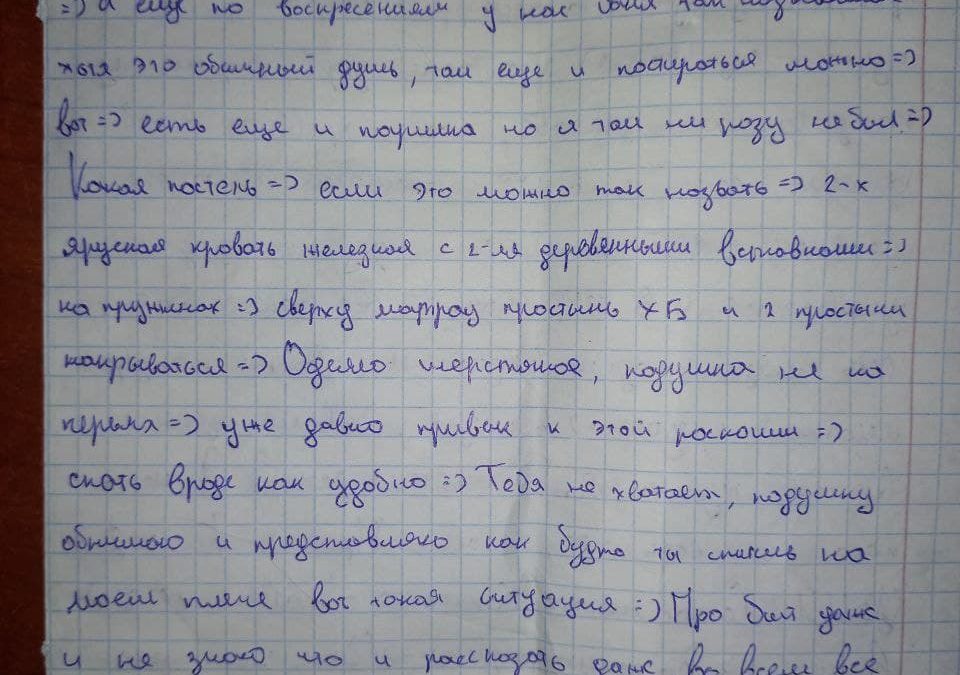 =) а еще по воскресениям у нас баня так
хотя это обычный душ, там еще и постираться можно =)
вот =) есть еще и парилка но я там ни разу не был =)
Какая постель =) если это можно так назвать =) 2-х
ярусная кровать железная с 2-мя деревянными вставками =)
на пружинах =) сверху матрац простынь ХБ и 2 простыни
накрываться =) Одеяло шерстяное, подушка не на
перьях =) уже давно привык к этой роскоши =)
спать вроде как удобно =) Тебя не хватает, подушку
обнимаю и представляю как будто ты спишь на
моем плече вот такая ситуация =) Про быт даже
и не знаю что и рассказать даже во всем все